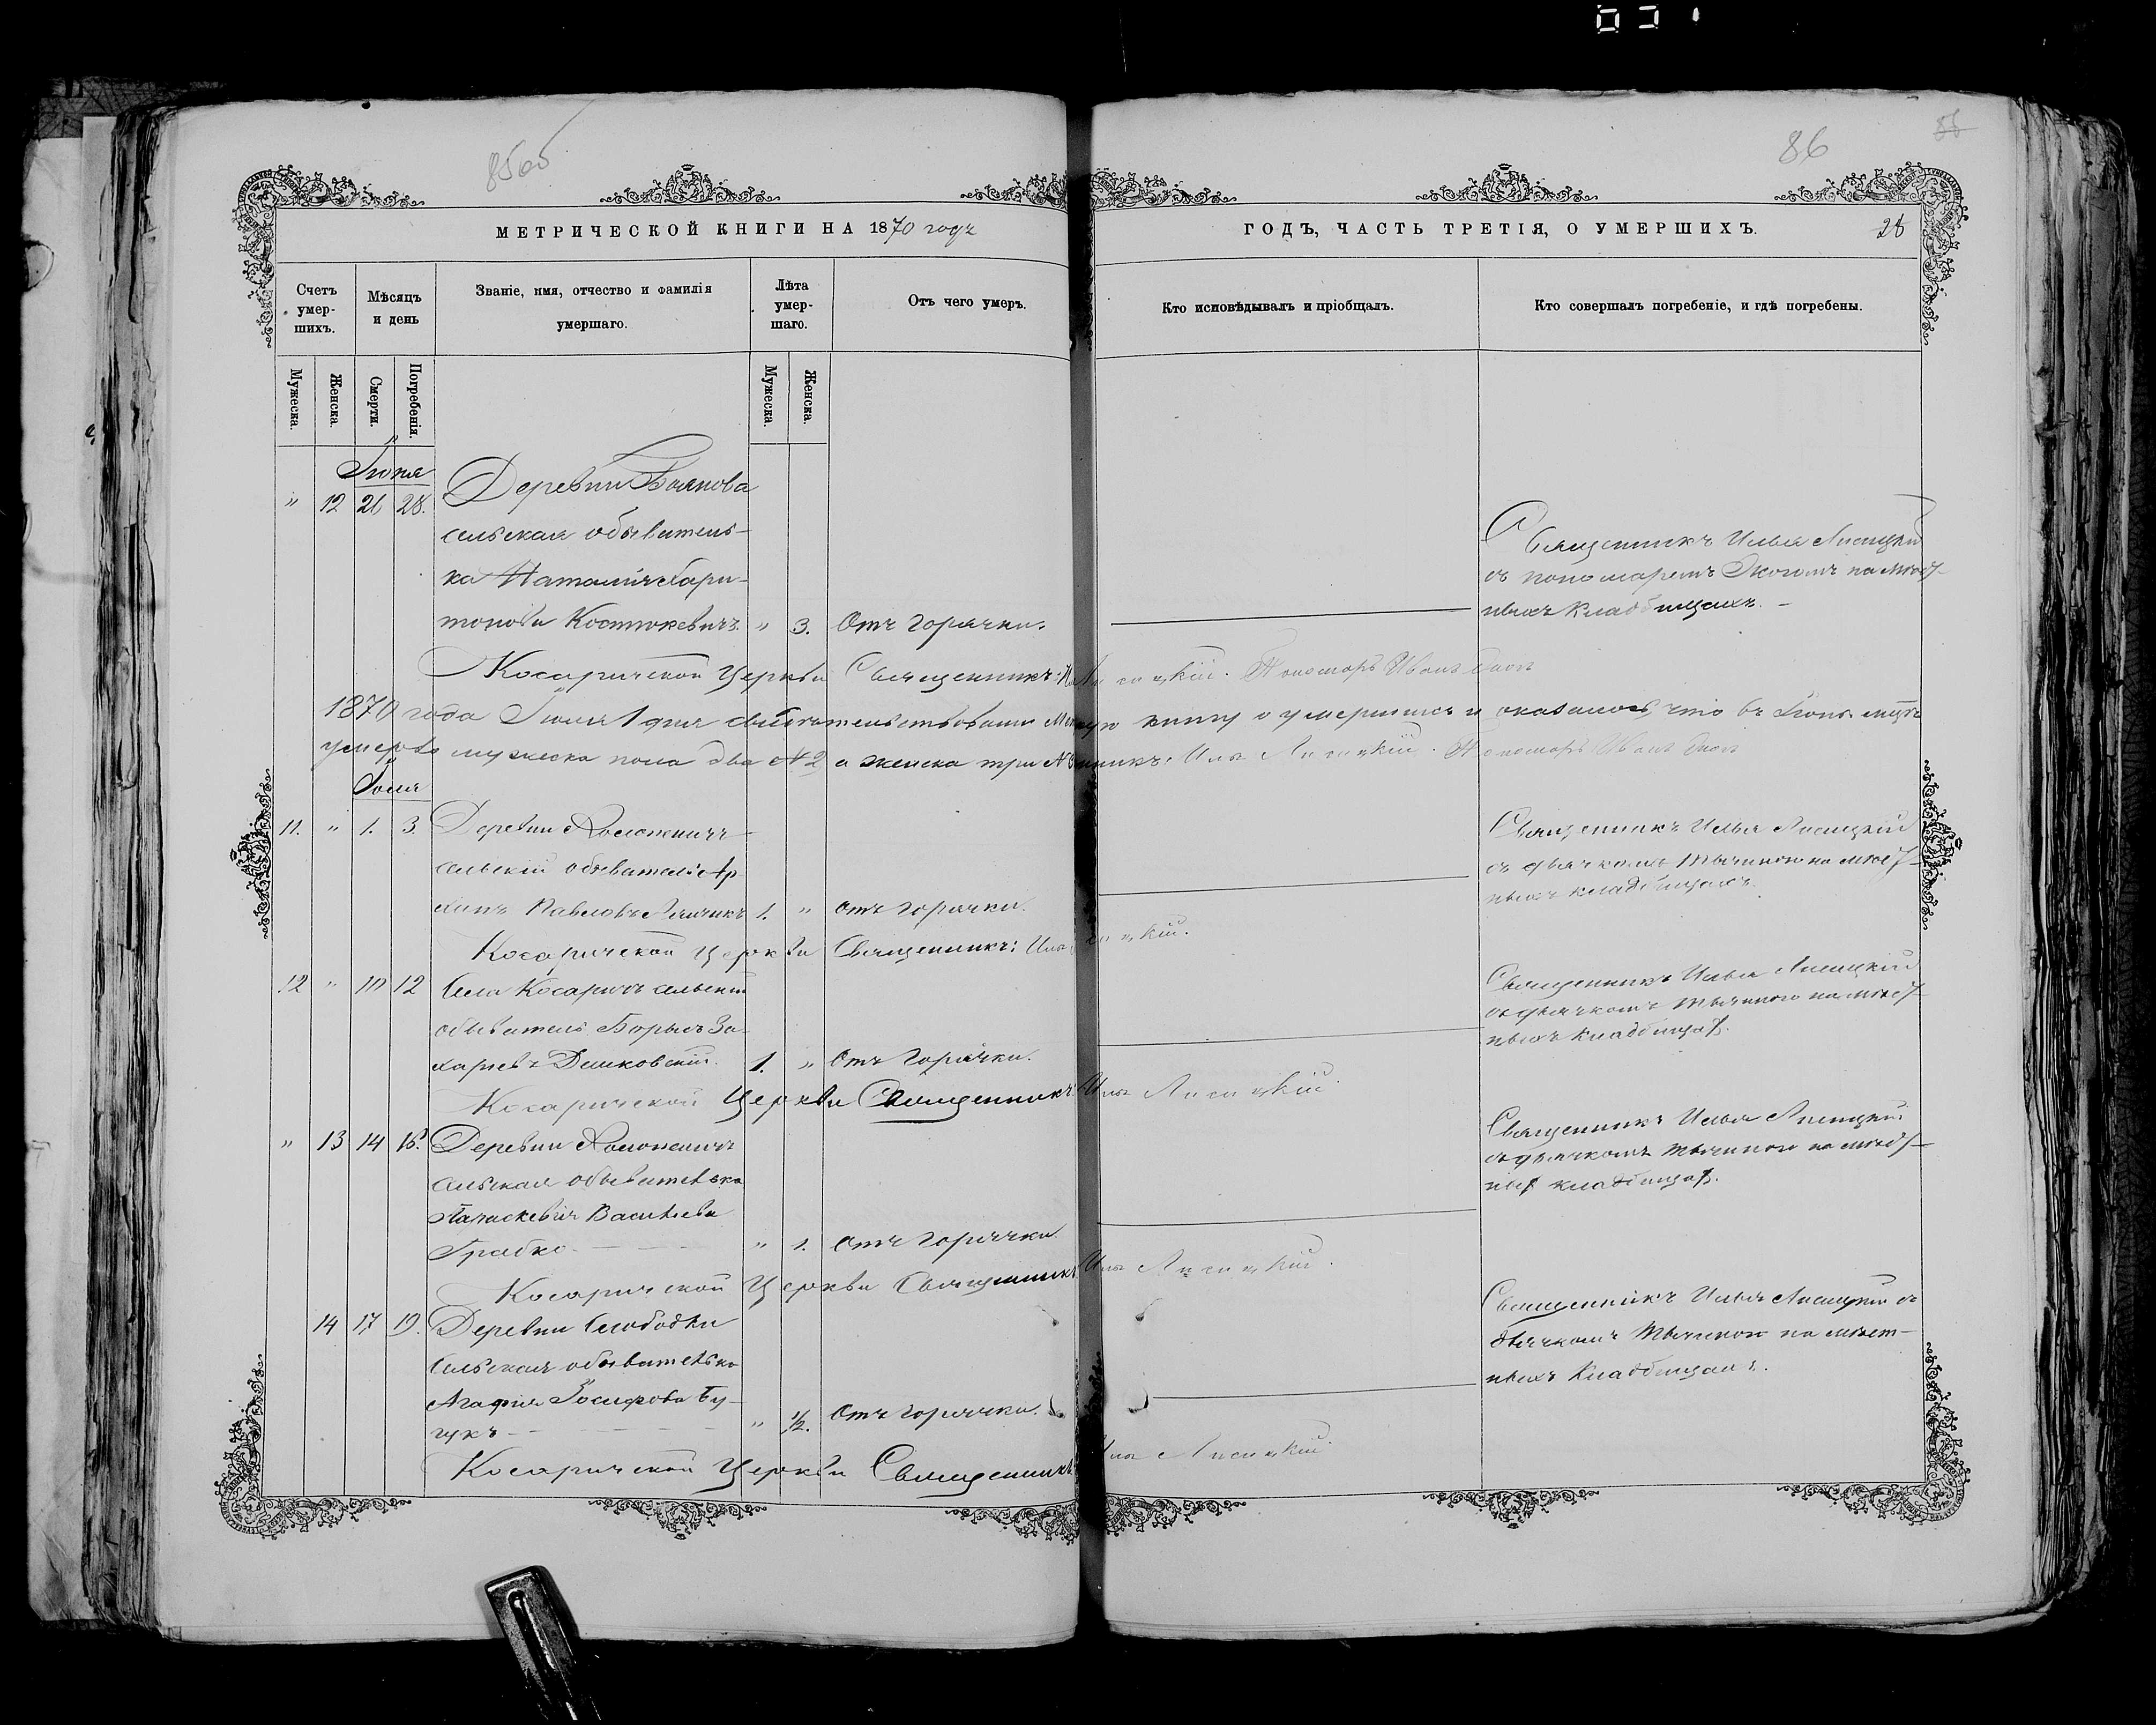 85об
86
МЕТРИЧЕСКОЙ КНИГИ НА 1870 годъ
ГОДЪ, ЧАСТЬ ТРЕТІЯ, О УМЕРШИХЪ.
28
Счетъ умер-шихъ.
Мѣсяцъ и день
Званіе, имя, отчество и фамилія умершаго.
Лѣта умер-шаго.
Отъ чего умеръ.
Кто исповѣдывалъ и пріобщалъ.
Кто совершалъ погребеніе, и гдѣ погребены.
Мужеска.
Женска.
Смерти.
Погребенія.
Мужеска.
Женска.
Іюня
" 12 26 28. Деревни
сельская обыватель-
ка Наталія Хари-
тонова Костюкевичъ. " 3. Отъ горячки.
Священникъ Илья Лисицкій
съ пономаремъ на мѣст-
ныхъ кладбищахъ.
Косаричской Церкви Священникъ: Лисицкій. Пономарь Иванъ
1870 года Іюля 1 дня свидѣтельствовали книгу о умершихъ и оказалось, что въ Іюнѣ мцѣ
умерло мужеска пола два № 2, а женска три Илья Лисицкій. Пономарь Иванъ
Іюля
11. " 1. 3. Деревни
сельскій обыватель Ар-
хипъ Павловъ 1. " отъ горячки.
Священникъ Илья Лисицкій
съ дьячкомъ на мѣст-
ныхъ кладбищахъ.
Косаричской Церкви Священникъ: Илья Лисицкій.
12 " 10 12 Села Косаричъ сельскій
обыватель Борисъ За-
харіевъ 1. " Отъ горячки.
Священникъ Илья Лисицкій
съ дьячкомъ на мѣст-
ныхъ кладбищахъ.
Косаричской Церкви Священникъ: Илья Лисицкій.
" 13 14 16. Деревни
сельская обывателька
Параскевія Васильева
Грабко " 1. Отъ горячки.
Священникъ Илья Лисицкій
съ дьячкомъ на мѣст-
ныхъ кладбищахъ.
Косаричской Церкви Священникъ Илья Лисицкій.
14 17 19. Деревни Слободки
Сельская обывателька
Агафія Іосифова Бу-
" 1/2. Отъ горячки.
Священникъ Илья Лисицкій съ
дьячкомъ на мѣст-
ныхъ кладбищахъ.
Косаричской Церкви Священникъ Илья Лисицкій.